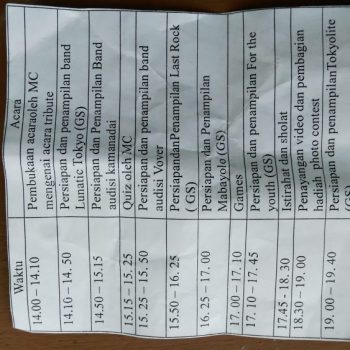 Waktu Acara
14.00 – 14.10 Pembukaan acaraoleh MC
mengenai acara tribute
14.10 – 14.50 Persiapan dan penampilan band
Lunatic Tokyo (GS)
14.50 – 15.15 Persiapan dan Penampilan Band
audisi kamanadai
15.15 – 15.25 Quiz oleh MC
15.25 – 15.50 Persiapan dan penampilan band
audisi Vover
15.50 – 16.25 PersiapandanPenampilan Last Rock
( GS)
16.25 – 17.00 Persiapan dan Penampilan
Mabayolo (GS)
17.00 – 17.10 Games
17.10 – 17.45 Persiapan dan penampilan For the
youth (GS)
17.45 - 18.30 Istirahat dan sholat
18.30 – 19.00 Penayangan video dan pembagian
hadiah photo contest
19.00 – 19.40 Persiapan dan penampilanTokyolite
(GS)